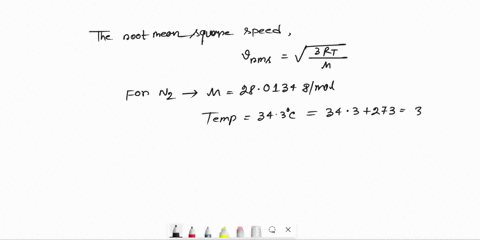 The root mean square speed,
𝜗rms = √(3RT/M)
For N₂ → M = 28.0134 g/mol
Temp = 34.3°C = 34.3+273 = 3